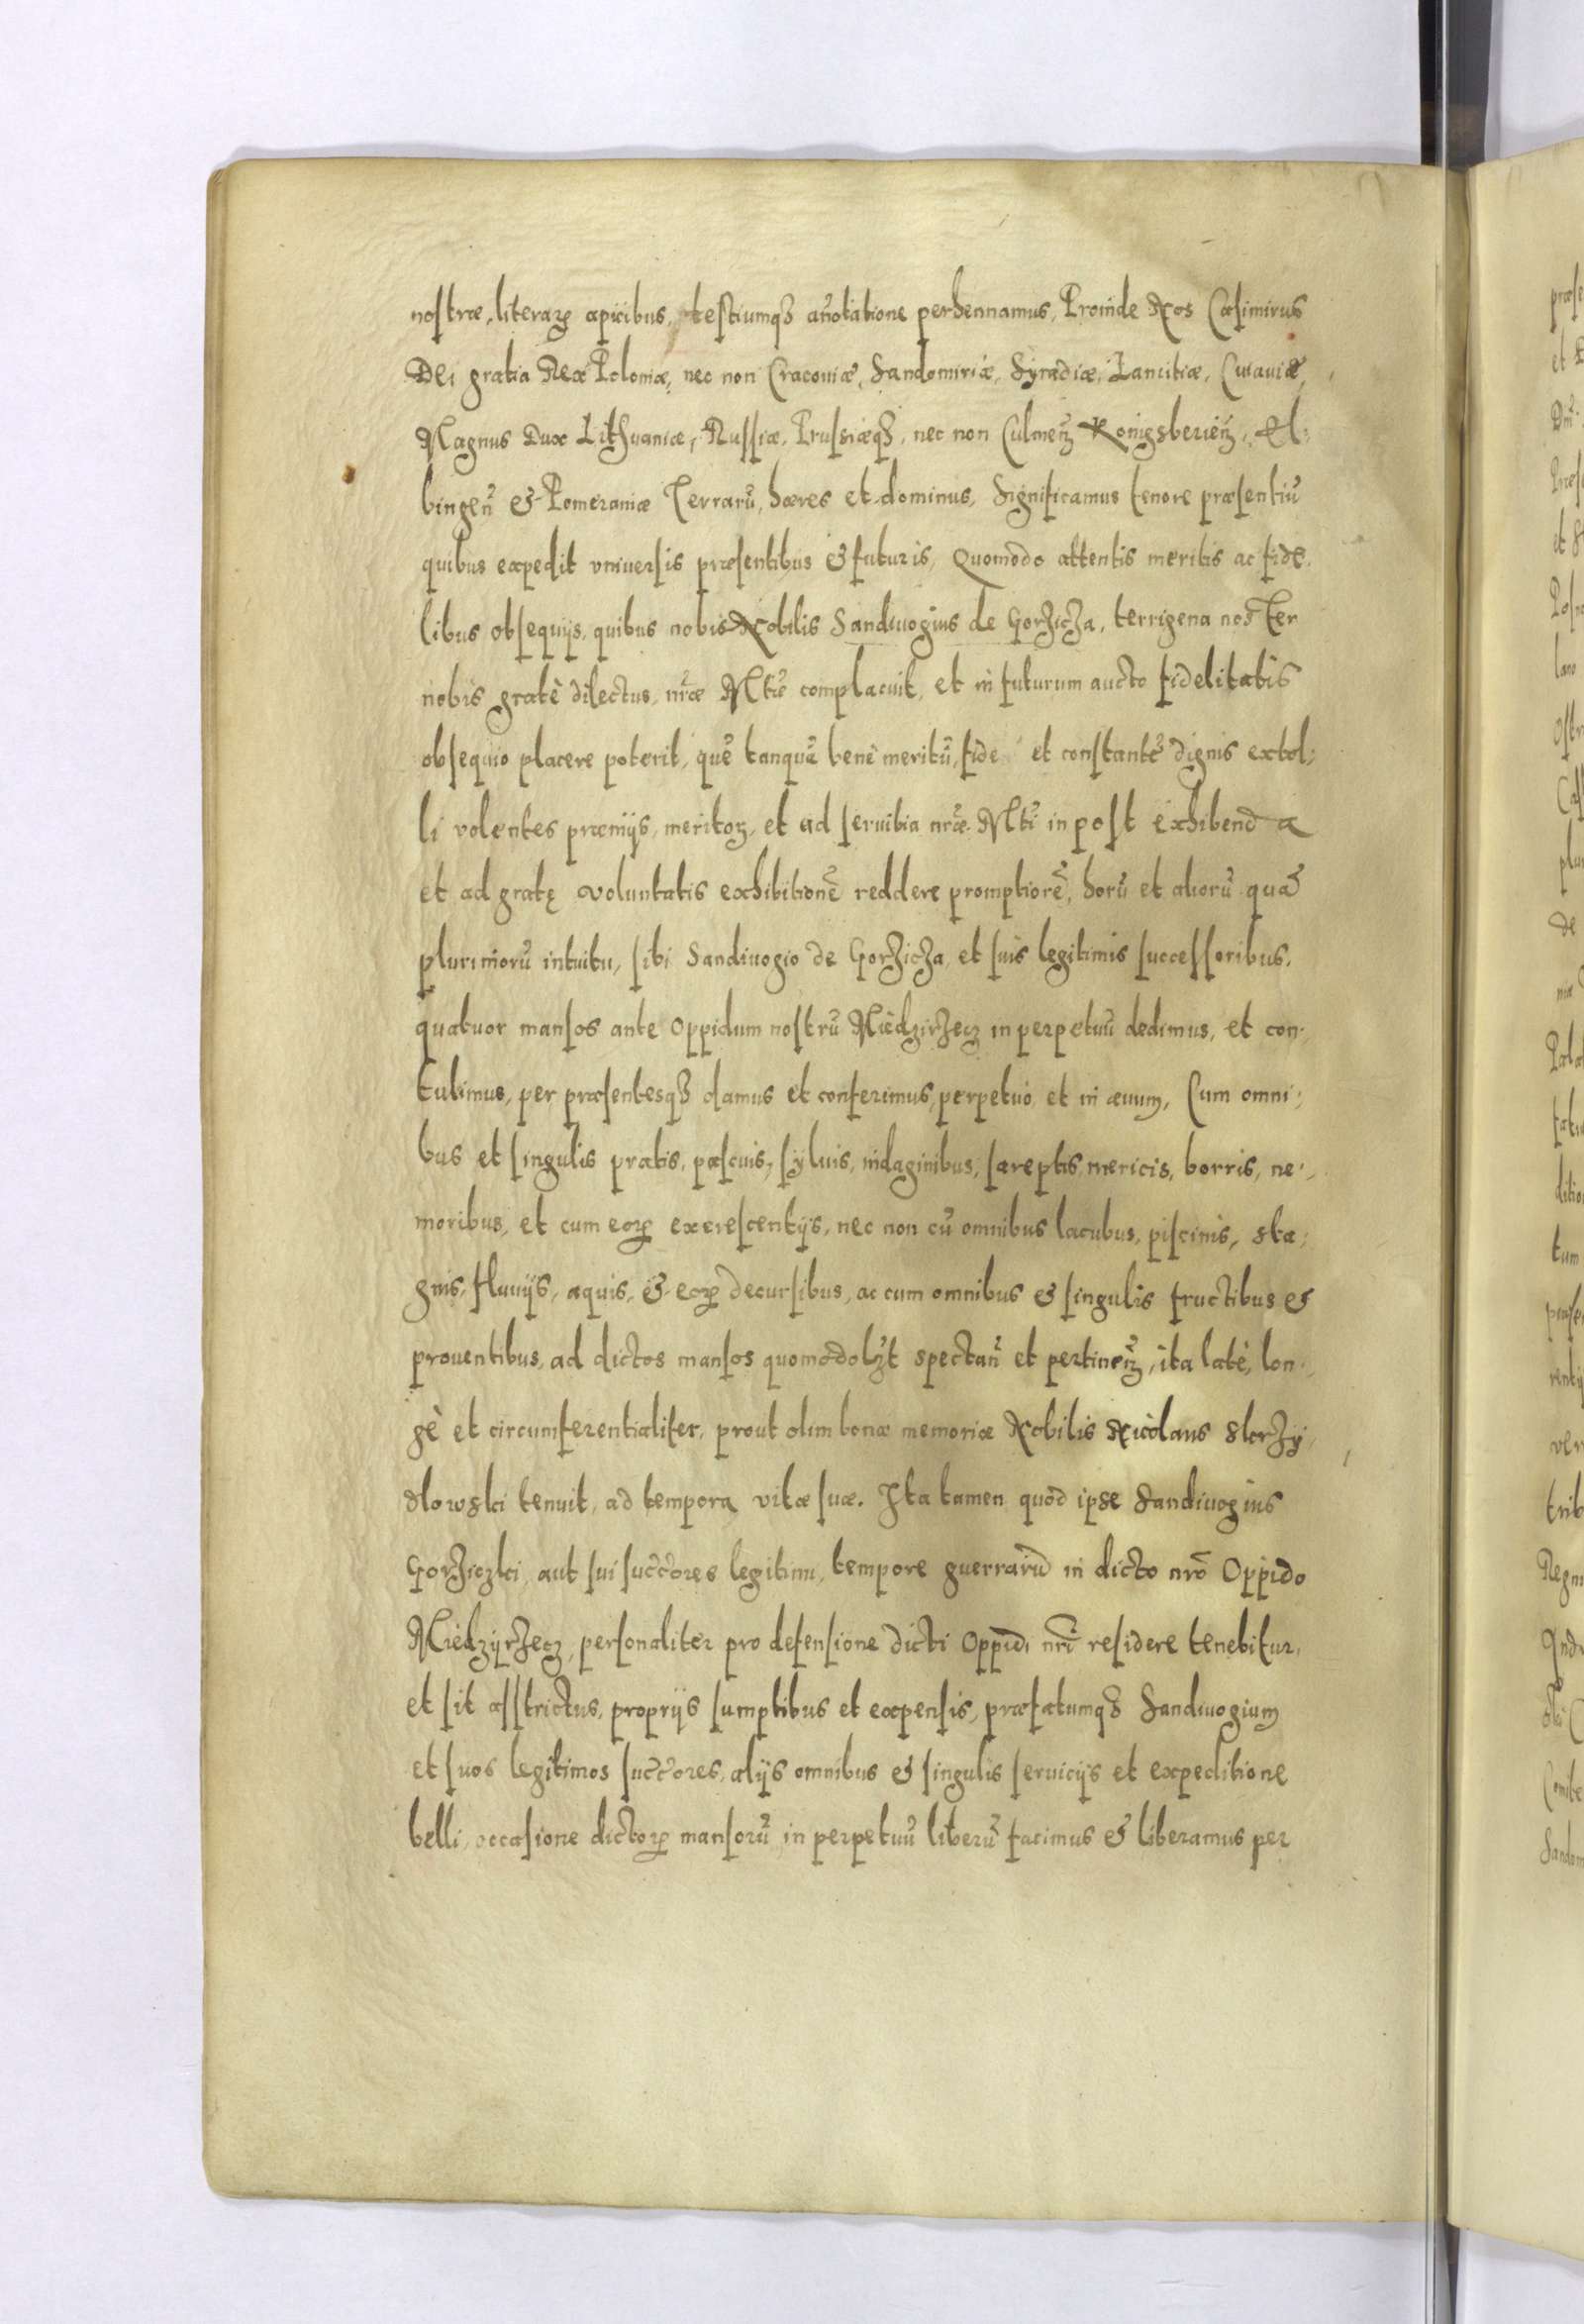 nostræ, literarꝝ apicibus, testiumqꝫ an̄otatione perhennamus, Proinde Nos Casimirus
Dei gratia Rex Poloniæ, nec non Cracouiæ, Sandomiriæ, Syradiæ, Lancitiæ, Cuiauiæ,
Magnus Dux Lithuaniæ, Russiæ, Prussiæqꝫ, nec non Culmen̄ Konigsberien̄, El:
bingen̄ & Pomeraniæ Terrarū, hæres et dominus, Significamus tenore præsentiū
quibus expedit vniuersis præsentibus & futuris, Quomodo attentis meritis ac fide
libus obsequijs, quibus nobis Nobilis Sandiuogius de Gorzicza, terrigena noster
nobis gratè dilectus, nr̄æ Mti complacuit, et in futurum aucto fidelitatis
obsequio placere poterit, quē tanquā benè meritū, fide et constantē dignis extol:
li volentes præmijs, meritoꝝ, et ad seruitia nr̄æ Mti in post exhibenda
et ad gratę voluntatis exhibitionē reddere promptiorē, horū et aliorū quā
plurimorū intuitu, sibi Sandiuogio de Gorzicza, et suis legitimis successoribus,
quatuor mansos ante Oppidum nostrū Miedzirzecz in perpetuū dedimus, et con:
tulimus, per præsentesqꝫ damus et conferimus, perpetuò et in æuum, Cum omni:
bus et singulis pratis, pascuis, syluis, indaginibus, sareptis, mericis, borris, ne:
moribus, et cum eorꝝ excrescentijs, nec non cū omnibus lacubus, piscinis, sta:
gnis, fluuijs, aquis, & eorꝝ decursibus, ac cum omnibus & singulis fructibus &
prouentibus, ad dictos mansos quomodolꝫt spectan̄ et pertinen̄, ita latè, lon:
gè et circumferentialiter, prout olim bonæ memoriæ Nobilis Nicolaus Skrzy
dlowski tenuit, ad tempora vitæ suæ. Ita tamen quòd ipse Sandiuogius
Gorziczki, aut sui succ̄ores legitimi, tempore guerrarū in dicto nr̄o Oppido
Miedzyrzecz, personaliter pro defensione dicti Oppidi nr̄i residere tenebitur,
et sit asstrictus, proprijs sumptibus et expensis, præfatumqꝫ Sandiuogium
et suos legitimos succ̄ores, alijs omnibus & singulis seruicijs et expeditione
belli, occasione dictorꝝ mansorū in perpetuū liberū facimus & liberamus per